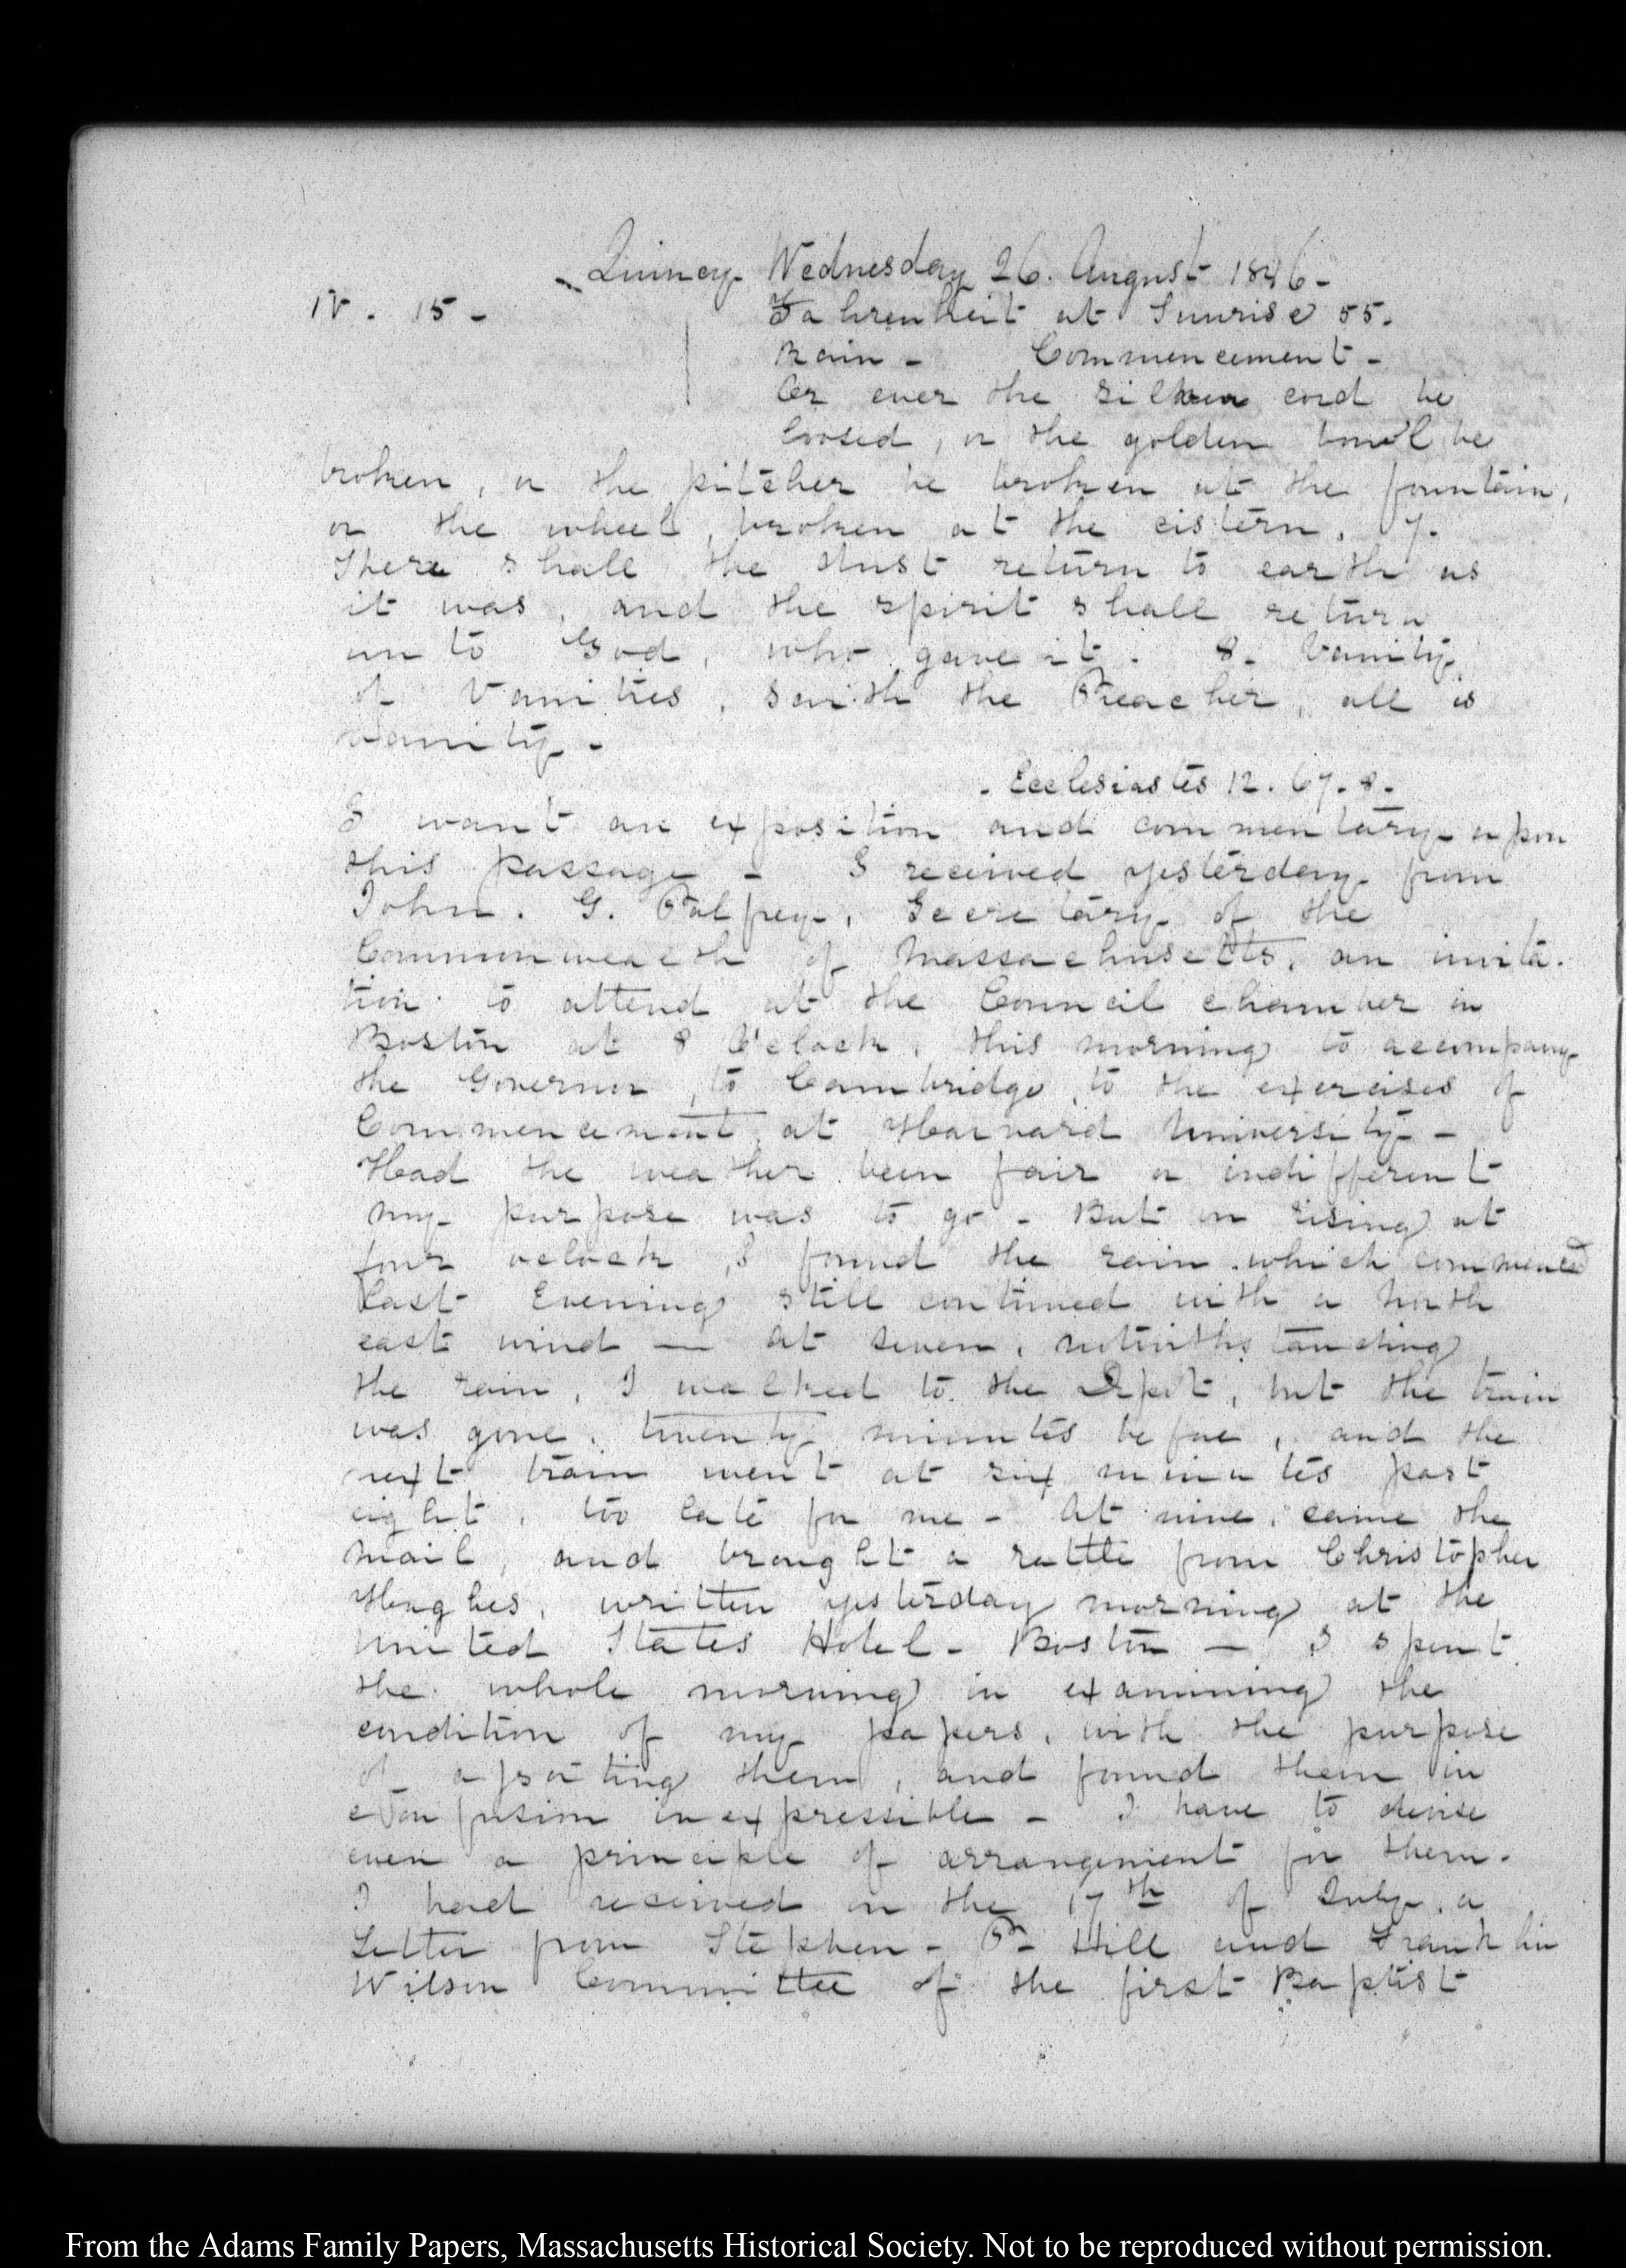 Quincy Wednesday 26. August 1846-
IV. 15-
Fahrenheit at Sunrise 55.
Rain - Commencement-
Or ever the silken cord be
loosed, or the golden bowl be
broken, or the pitcher be broken at the fountain,
or the wheel, broken at the cistern. 7.
There shall the dust return to earth as
it was, and the spirit shall return
unto God, who gave it. 8. Vanity
of Vanities, saith the Preacher, all is
vanity-
-Ecclesiastes 12. 67.8-
I want an exposition and commentary upon
this passage - I received yesterday from
John. G. Palfrey, Secretary of the
Commonwealth of Massachusetts, an invita-
tion to attend at the Council chamber in
Boston at 8 O'clock, this morning to accompany
the Governor, to Cambridge, to the exercises of
Commencement at Harvard University-
Had the weather been fair or indifferent
my purpose was to go - But on rising at
four oclock, I found the rain which commenced
last Evening still continued with a North
east wind — At seven, notwithstanding
the rain, I walked to the Depot, but the train
was gone, twenty minutes before, and the
next train went at six minutes past
eight, too late for me - At nine, came the
mail, and brought a rattle from Christopher
Hughes, written yesterday morning at the
United States Hotel - Boston — I spent
the whole morning in examining the
condition of my papers, with the purpose
of assorting them, and found them in
confusion inexpressible - I have to devise
even a principle of arrangement for them.
I had received on the 17th of July, a
Letter from Stephen - P- Hill and Franklin
Wilson Committee of the first Baptist
From the Adams Family Papers, Massachusetts Historical Society. Not to be reproduced without permission.